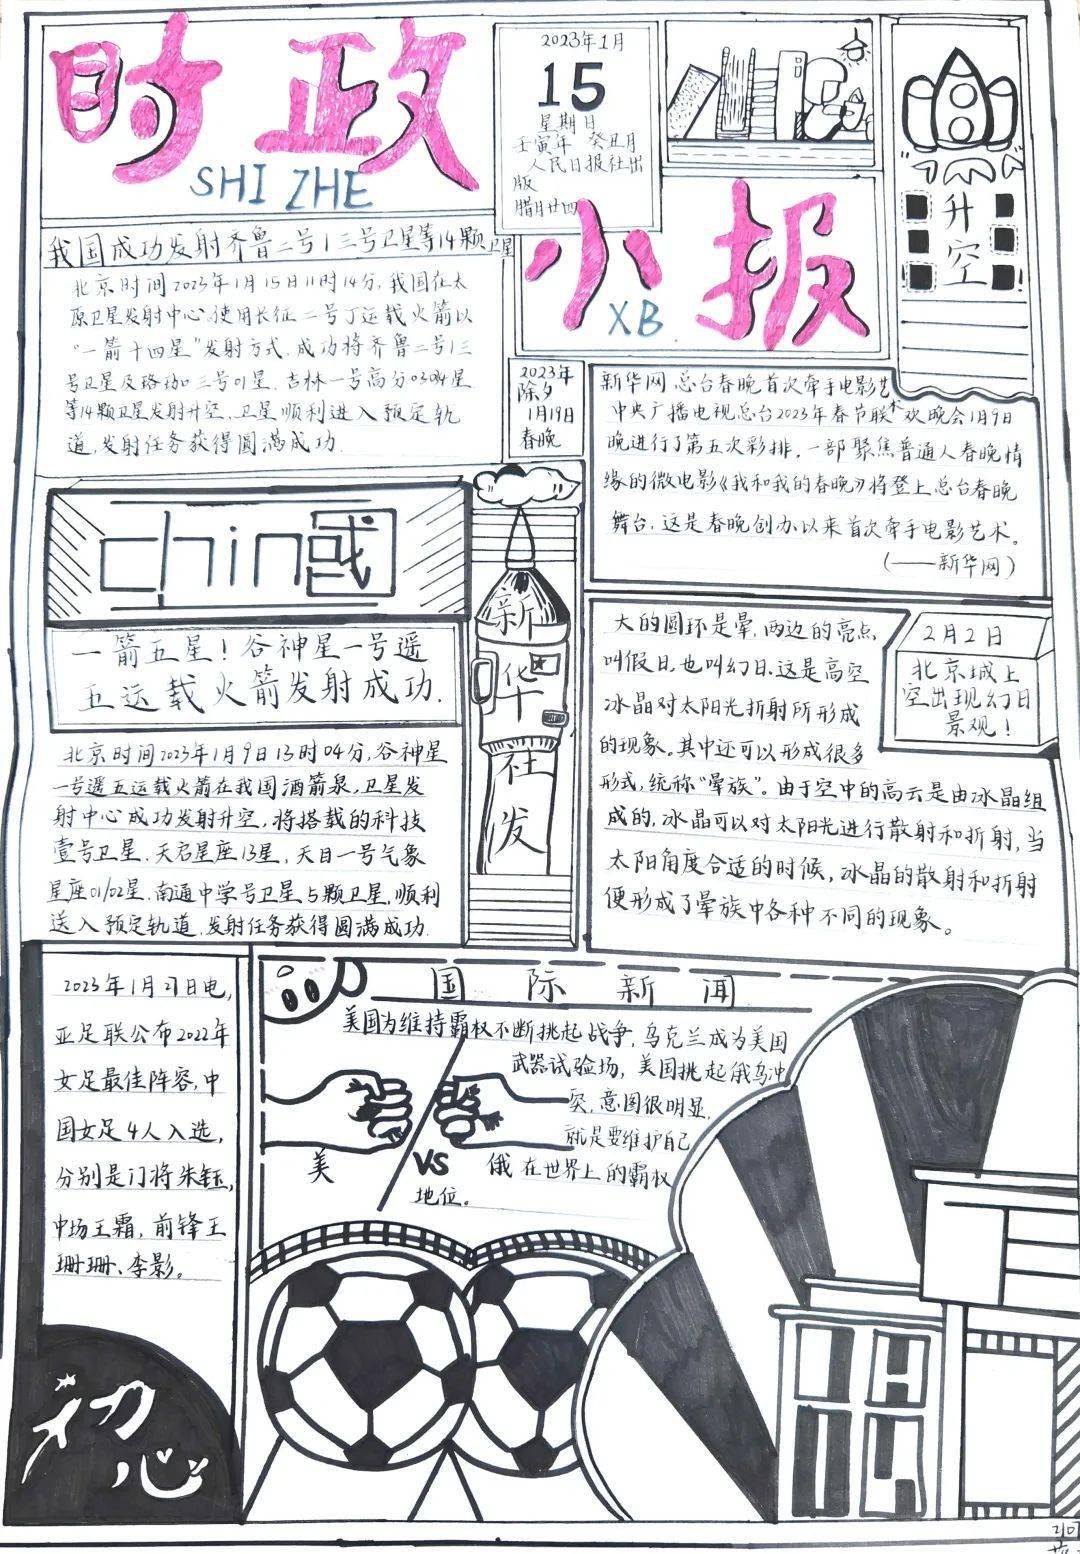 时政
SHI ZHE
2023年1月
15
星期日
壬寅年 癸丑月
人民日报社出
版
腊月廿四
小报
XB
升空
我国成功发射齐鲁二号/三号卫星等14颗卫星
北京时间2023年1月15日11时14分,我国在太
原卫星发射中心使用长征二号丁运载火箭以
“一箭十四星”发射方式,成功将齐鲁二号/三
号卫星及珞珈三号01星,吉林一号高分03D34星
等14颗卫星发射升空,卫星顺利进入预定轨
道,发射任务获得圆满成功.
2023年
除夕
1月19日
春晚
新华网 总台春晚首次牵手电影艺术
中央广播电视总台2023年春节联欢晚会1月9日
晚进行了第五次彩排,一部聚焦普通人春晚情
缘的微电影《我和我的春晚》将登上总台春晚
舞台,这是春晚创办以来首次牵手电影艺术。
(——新华网)
chin國
一箭五星!谷神星一号遥
五运载火箭发射成功.
北京时间2023年1月9日13时04分,谷神星
一号遥五运载火箭在我国酒箭泉,卫星发
射中心成功发射升空,将搭载的科技
壹号卫星、天启星座13星,天目一号气象
星座01/02星,南通中学号卫星5颗卫星,顺利
送入预定轨道,发射任务获得圆满成功.
新华社发
大的圆环是晕,两边的亮点
叫假日,也叫幻日.这是高空
冰晶对太阳光折射所形成
的现象。其中还可以形成很多
形式,统称“晕族”。由于空中的高云是由冰晶组
成的,冰晶可以对太阳光进行散射和折射,当
太阳角度合适的时候,冰晶的散射和折射
便形成了晕族中各种不同的现象。
2月2日
北京城上
空出现幻日
景观!
2023年1月27日电,
亚足联公布2022年
女足最佳阵容,中
国女足4人入选,
分别是门将朱钰,
中场王霜,前锋王
珊珊、李影。
初心
国际新闻
美国为维持霸权不断挑起战争,乌克兰成为美国
武器试验场,美国挑起俄乌冲
突,意图很明显,
就是要维护自己
在世界上的霸权
地位。
美
VS
俄